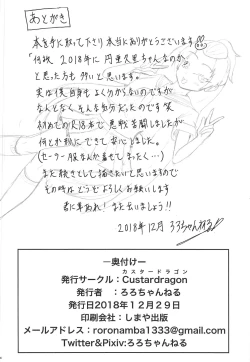 あとがき
本を手に取って下さり本当にありがとうございます!!
「何故、2018年に円亜久里ちゃんなのか」
と思った方も多いと思います。
実は僕自身もよく分からないのですが
なんとなくそんな気分だったのです 笑
初めての 本で悪戦苦闘しましたが
何とか形にできて安心しました。
(セーラー服なんか着せて まったく…)
また描きとして描きたいと思いますので
その時はどうぞよろしくお願いします
君に幸あれ! また会いましょう!!
2018年12月 ろろちゃんねる
ー奥付けー
カスタードラゴン
発行サークル：Custardragon
発行者 ：ろろちゃんねる
発行日2018年12月29日
印刷会社：しまや出版
メールアドレス：roronamba1333@gmail.com
Twitter&Pixiv:ろろちゃんねる